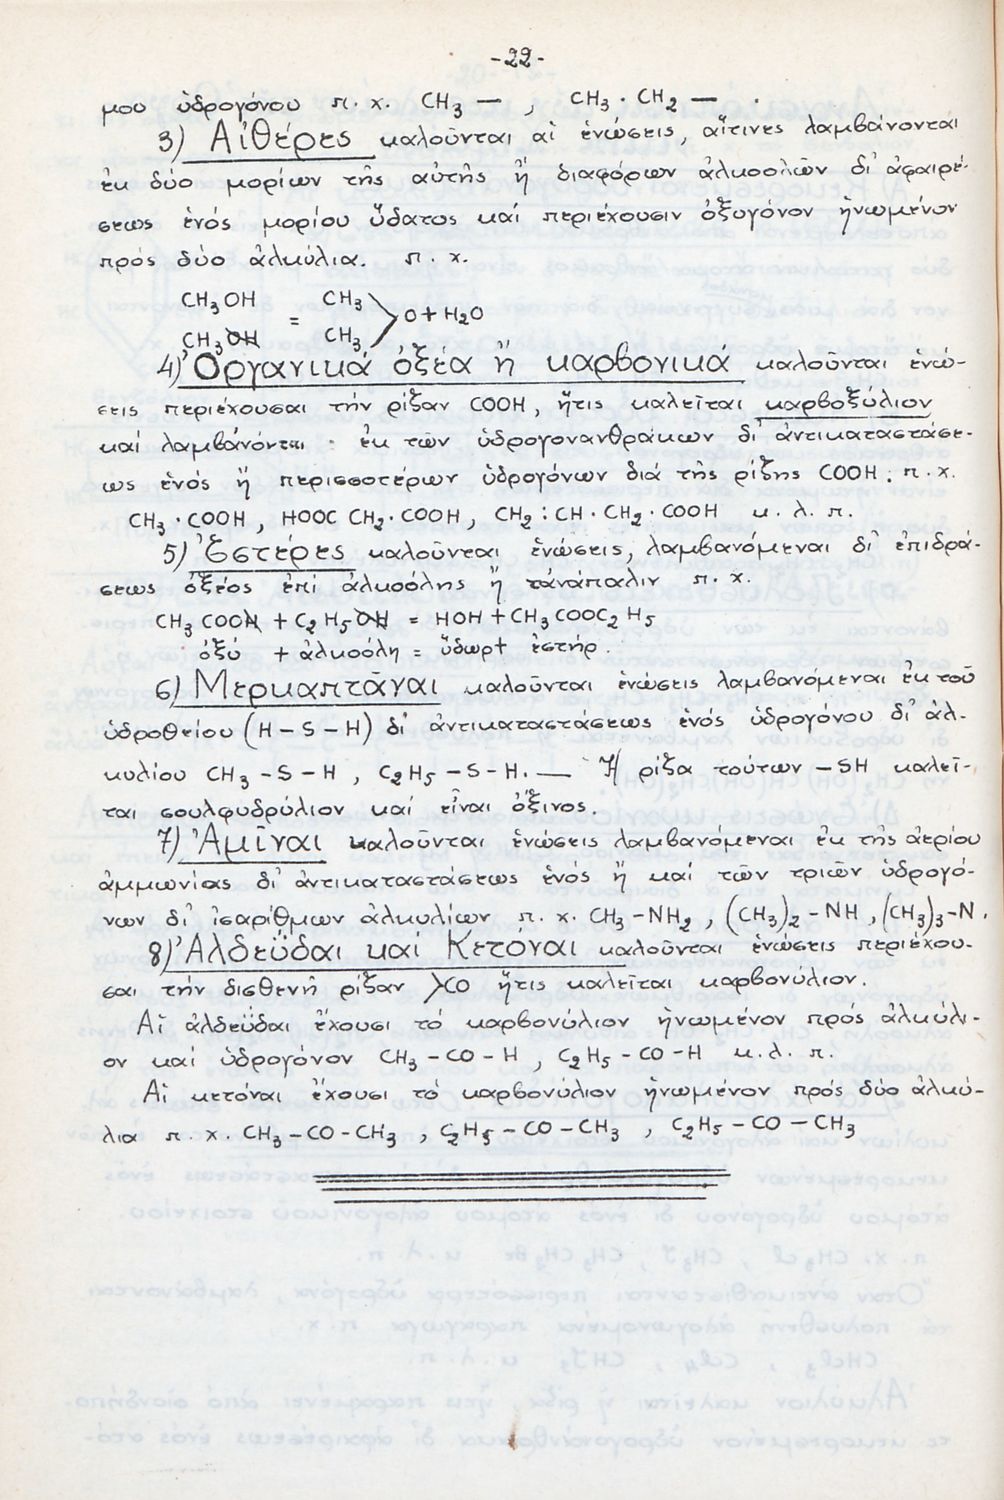 -22-
μου ὑδρογόνου π.χ. CH₃ — , CH₃·CH₂ — .
3) Αἰθέρες καλοῦνται αἱ ἑνώσεις, αἵτινες λαμβάνονται
ἐκ δύο μορίων τῆς αὐτῆς ἤ διαφόρων ἀλκοολῶν δι' ἀφαιρέ-
σεως ἑνός μορίου ὕδατος καί περιέχουσιν ὀξυγόνον ἡνωμένον
πρός δύο ἀλκύλια. π.χ.
CH₃OH CH₃
= >O + H₂O
CH₃OH CH₃
4) Ὀργανικά ὀξέα ἤ καρβονικά καλοῦνται ἑνώ-
σεις περιέχουσαι τήν ρίζαν COOH, ἥτις καλεῖται καρβοξύλιον
καί λαμβάνονται ἐκ τῶν ὑδρογονανθράκων δι' ἀντικαταστάσε-
ως ἑνός ἤ περισσοτέρων ὑδρογόνων διά τῆς ρίζης COOH: π.χ.
CH₃·COOH, HOOC CH₂·COOH, CH₂:CH·CH₂·COOH κ.λ.π.
5) Ἐστέρες καλοῦνται ἑνώσεις, λαμβανόμεναι δι' ἐπιδρά-
σεως ὀξέος ἐπί ἀλκοόλης ἤ τἀνάπαλιν π.χ.
CH₃COOH + C₂H₅OH = HOH + CH₃COOC₂H₅
ὀξύ + ἀλκοόλη = ὕδωρ + ἐστήρ.
6) Μερκαπτᾶναι καλοῦνται ἑνώσεις λαμβανόμεναι ἐκ τοῦ
ὑδροθείου (H – S – H) δι' ἀντικαταστάσεως ἑνός ὑδρογόνου δι' ἀλ-
κυλίου CH₃ – S – H, C₂H₅ – S – H. — Ἡ ρίζα τούτων – SH καλεῖ-
ται σουλφυδρύλιον καί εἶναι ὄξινος.
7) Ἀμῖναι καλοῦνται ἑνώσεις λαμβανόμεναι ἐκ τῆς ἀερίου
ἀμμωνίας δι' ἀντικαταστάσεως ἑνός ἤ καί τῶν τριῶν ὑδρογό-
νων δι' ἰσαρίθμων ἀλκυλίων π.χ. CH₃-NH₂, (CH₃)₂-NH, (CH₃)₃-N.
8) Ἀλδεΰδαι καί Κετόναι καλοῦνται ἑνώσεις περιέχου-
σαι τήν δισθενῆ ρίζαν >CO ἥτις καλεῖται καρβονύλιον.
Αἱ ἀλδεΰδαι ἔχουσι τό καρβονύλιον ἡνωμένον πρός ἀλκύλι-
ον καί ὑδρογόνον CH₃ – CO – H, C₂H₅ – CO – H κ.λ.π.
Αἱ κετόναι ἔχουσι τό καρβονύλιον ἡνωμένον πρός δύο ἀλκύ-
λια π.χ. CH₃ – CO – CH₃, C₂H₅ – CO – CH₃, C₂H₅ – CO – CH₃